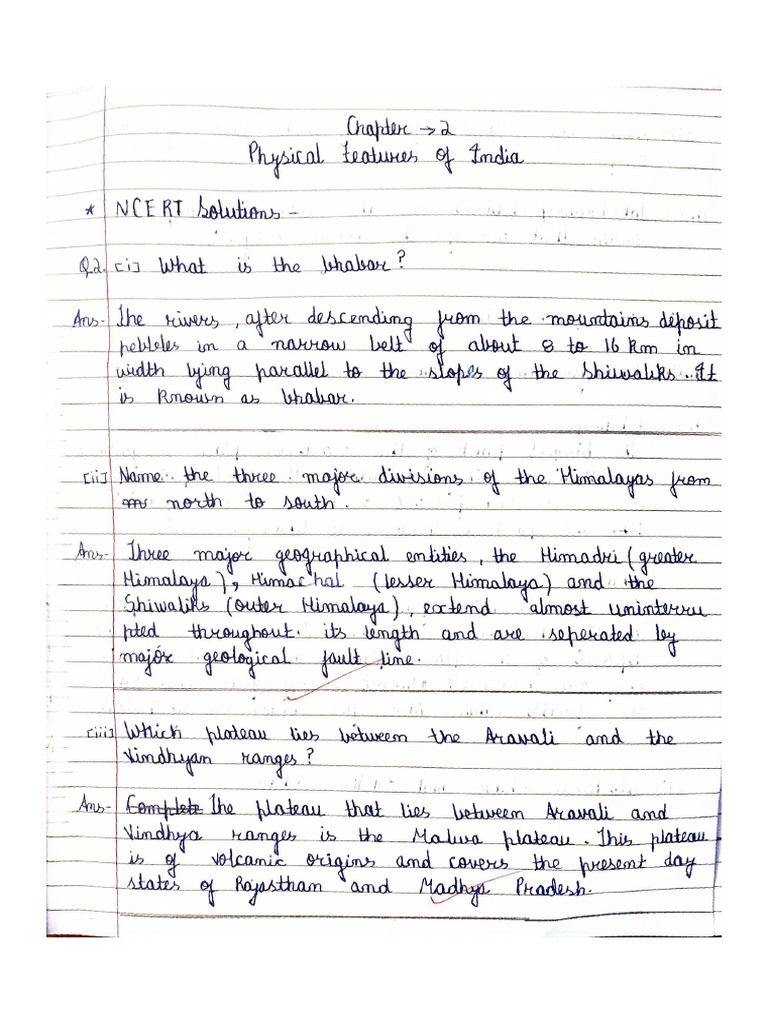 Chapter → 2
Physical Features of India
* NCERT Solutions -
Q2. [i] What is the bhabar?
Ans- The rivers, after descending from the mountains deposit
pebbles in a narrow belt of about 8 to 16 km in
width lying parallel to the slopes of the Shiwaliks. It
is known as bhabar.
[ii] Name the three major divisions of the Himalayas from
north to south.
Ans- Three major geographical entities, the Himadri (greater
Himalaya), Himachal (lesser Himalaya) and the
Shiwaliks (outer Himalaya), extend almost uninterru
pted throughout its length and are seperated by
major geological fault line.
[iii] Which plateau lies between the Aravali and the
Vindhyan ranges?
Ans- Complete The plateau that lies between Aravali and
Vindhya ranges is the Malwa plateau. This plateau
is of volcanic origins and covers the present day
states of Rajasthan and Madhya Pradesh.